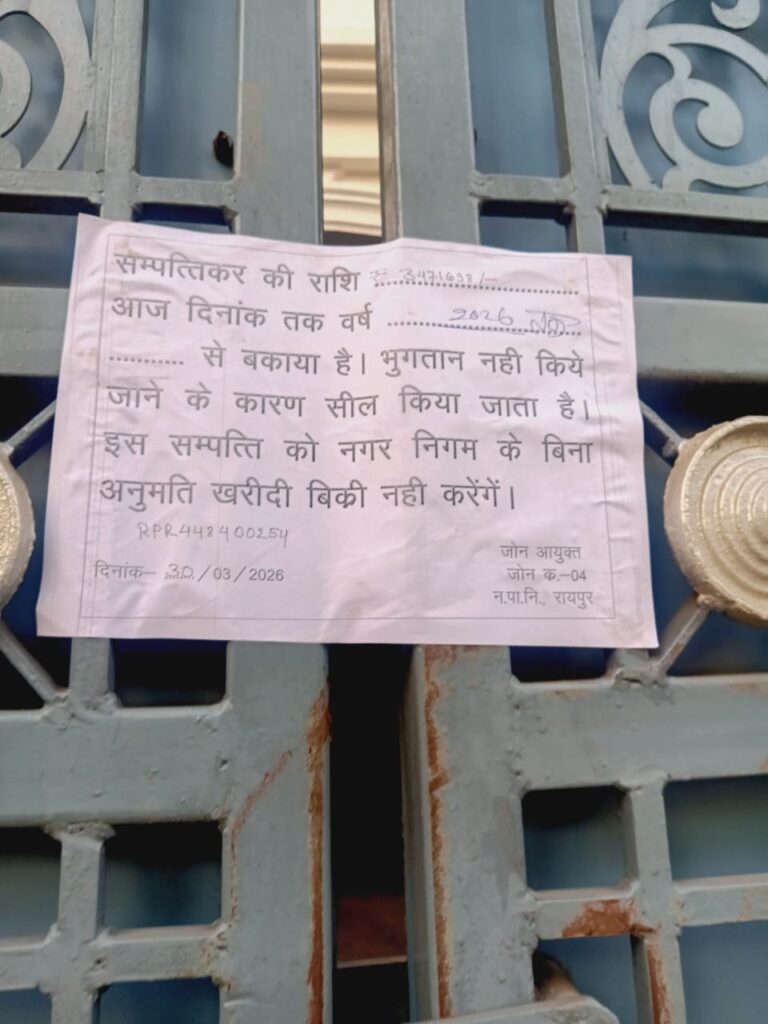 सम्पत्तिकर की राशि रु 3471698/-
आज दिनांक तक वर्ष ..................... 2026
............ से बकाया है। भुगतान नही किये
जाने के कारण सील किया जाता है।
इस सम्पत्ति को नगर निगम के बिना
अनुमति खरीदी बिक्री नही करेंगें।
RPR448400254
दिनांक- 30/03/2026
जोन आयुक्त
जोन क्र.-04
न.पा.नि., रायपुर